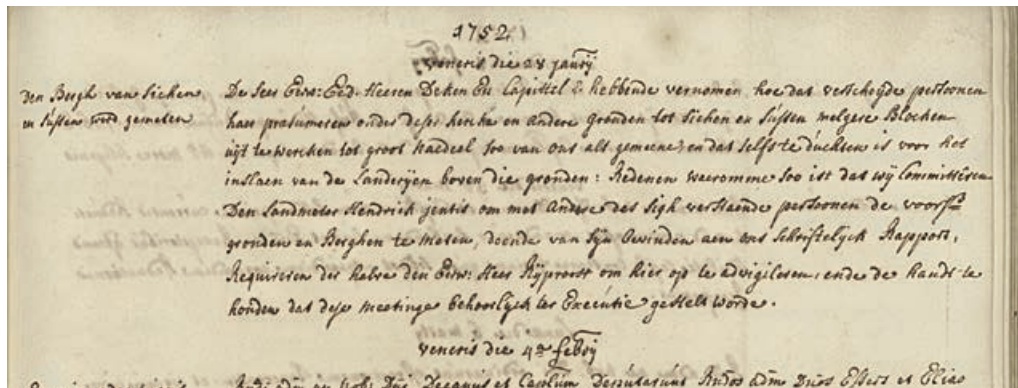 1752
veneris die 28 janrij
Den Bergh van Sichen
en Sussen word gemeten
De seer Eerw: Eed. Heeren Deken En Capittel &c hebbende vernomen, hoe dat verscheijde persoonen
haer præsumeren onder dese kercke en andere gronden tot Sichen en Sussen melgere Blocken
uijt te wercken tot groot naedeel soo van ons als gemeene; en dat selfs te duchten is voor het
inslaen van de Landerijen boven die gronden: Redenen waeromme soo ist dat wij Committeren
Den Landmeter Hendrick jentis om met Andere des sigh verstaende persoonen de voorsr.
gronden en Berghen te meten, doende van sijn Bevinden aen ons Schriftelijck Rapport,
Requireren der halve den Eerw: Heer Rijproost om hier op te advigileren, ende de handt te
houden dat dese meetinge behoorlijck ter Executie gestelt worde.
veneris die 4a febrij
Dni Decanus et Capitulum Deputarunt Dnos Essers et